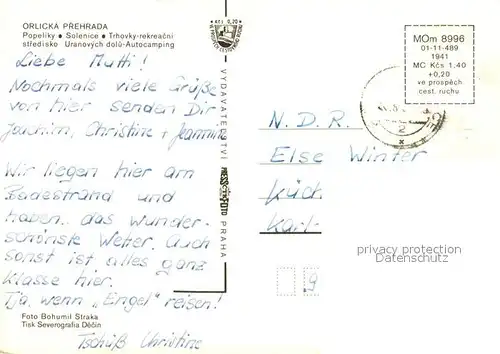 ORLICKÁ PŘEHRADA
Popelíky ● Solenice ● Trhovky-rekreační
středisko Uranových dolů-Autocamping
Liebe Mutti!
Nochmals viele Grüße
von hier senden Dir
Joachim, Christine + Jeannine
Wir liegen hier am
Badestrand und
haben das wunder-
schönste Wetter. Auch
sonst ist alles ganz
Klasse hier.
Tja, wenn „Engel" reisen!
Tschüß Christine
Foto Bohumil Straka
Tisk Severografia Děčín
Kčs 0,20
VYDAVATELSTVÍ PRESSFOTO PRAHA
MOm 8996
01-11-489
1941
MC Kčs 1,40
+0,20
ve prospěch
cest. ruchu
2
N.D.R.
Else Winter
Küch
Karl-
9
privacy protection
Datenschutz